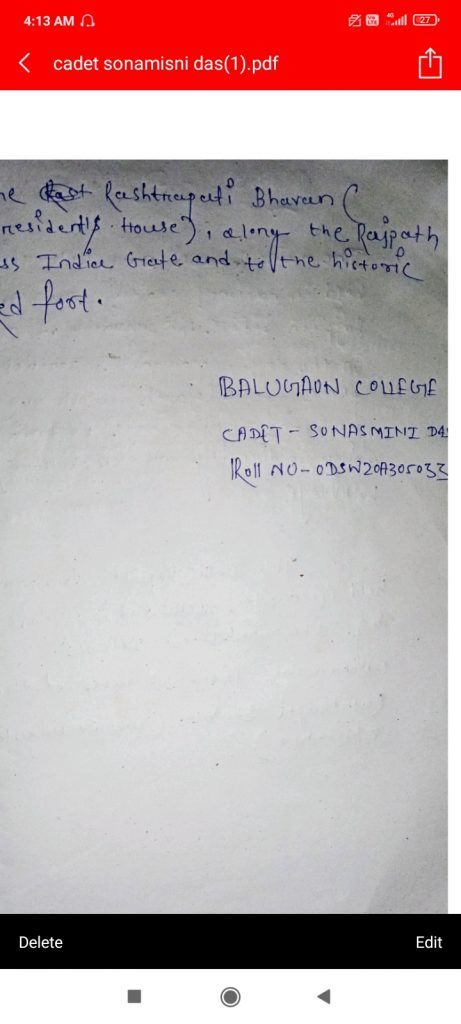 4:13 AM
4G 27
cadet sonamisni das(1).pdf
ne Rashtrapati Bhavan (
resident's House), along the Rajpath
ss India Gate and to the hictoric
ed foot.
BALUGAON COLLEGE
CADET - SONASMINI DAS
Roll NO - ODSW20A305033
Delete
Edit